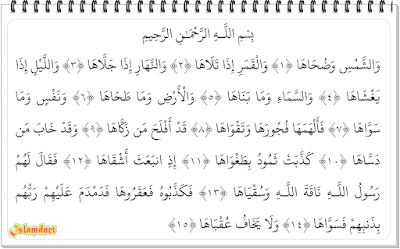 بِسْمِ اللَّـهِ الرَّحْمَـٰنِ الرَّحِيمِ
وَالشَّمْسِ وَضُحَاهَا ﴿١﴾ وَالْقَمَرِ إِذَا تَلَاهَا ﴿٢﴾ وَالنَّهَارِ إِذَا جَلَّاهَا ﴿٣﴾ وَاللَّيْلِ إِذَا
يَغْشَاهَا ﴿٤﴾ وَالسَّمَاءِ وَمَا بَنَاهَا ﴿٥﴾ وَالْأَرْضِ وَمَا طَحَاهَا ﴿٦﴾ وَنَفْسٍ وَمَا
سَوَّاهَا ﴿٧﴾ فَأَلْهَمَهَا فُجُورَهَا وَتَقْوَاهَا ﴿٨﴾ قَدْ أَفْلَحَ مَن زَكَّاهَا ﴿٩﴾ وَقَدْ خَابَ مَن
دَسَّاهَا ﴿١٠﴾ كَذَّبَتْ ثَمُودُ بِطَغْوَاهَا ﴿١١﴾ إِذِ انبَعَثَ أَشْقَاهَا ﴿١٢﴾ فَقَالَ لَهُمْ
رَسُولُ اللَّـهِ نَاقَةَ اللَّـهِ وَسُقْيَاهَا ﴿١٣﴾ فَكَذَّبُوهُ فَعَقَرُوهَا فَدَمْدَمَ عَلَيْهِمْ رَبُّهُم
بِذَنبِهِمْ فَسَوَّاهَا ﴿١٤﴾ وَلَا يَخَافُ عُقْبَاهَا ﴿١٥﴾
Islamdnet